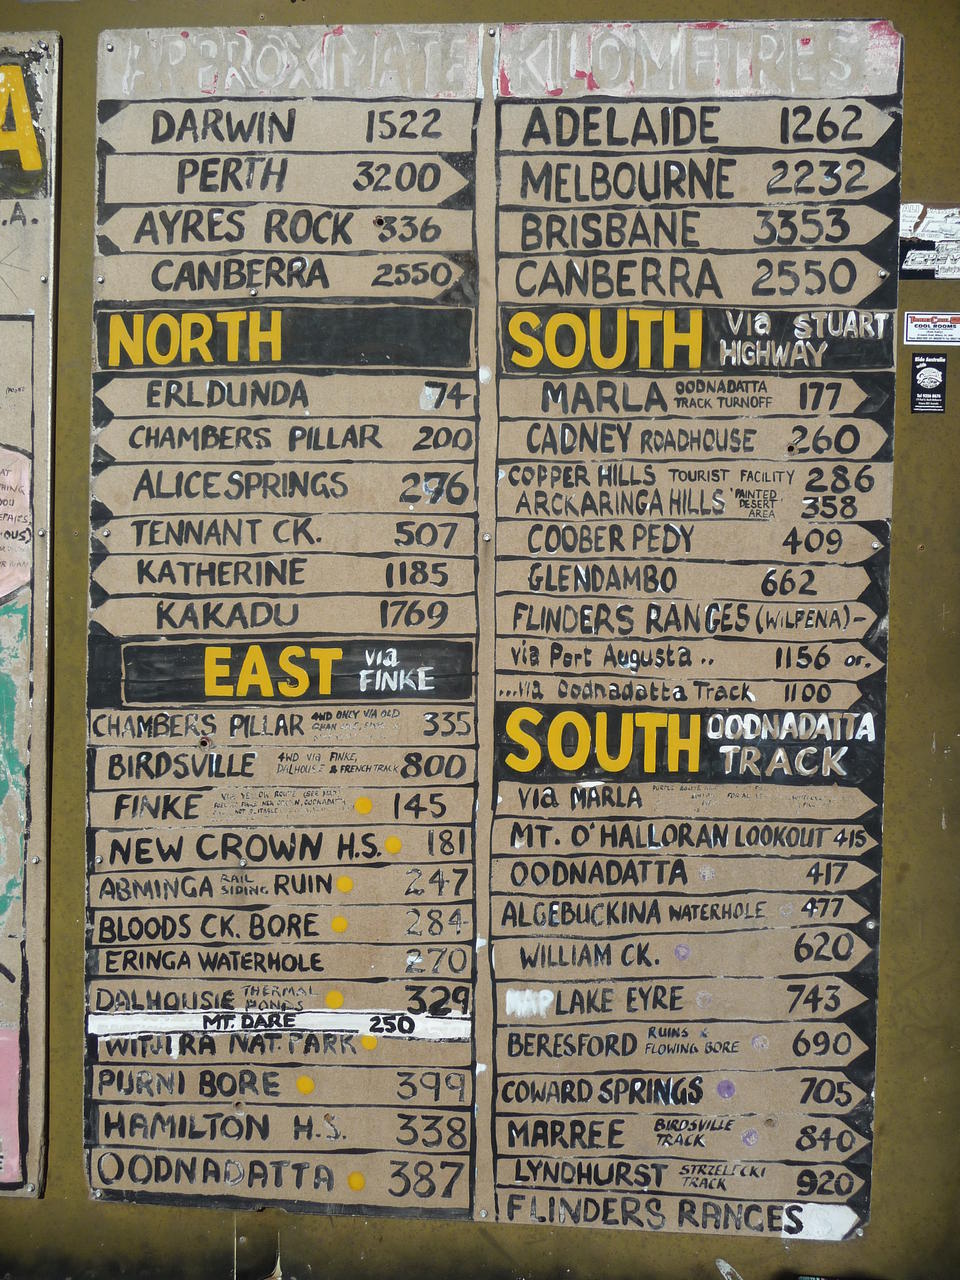 APPROXIMATE KILOMETRES
DARWIN 1522
PERTH 3200
AYRES ROCK 336
CANBERRA 2550
NORTH
ERLDUNDA 74
CHAMBERS PILLAR 200
ALICE SPRINGS 276
TENNANT CK. 507
KATHERINE 1185
KAKADU 1769
EAST via FINKE
CHAMBERS PILLAR 4WD ONLY VIA OLD 335
BIRDSVILLE 4WD via FINKE, DALHOUSE & FRENCH TRACK 800
FINKE 145
NEW CROWN H.S. 181
ABMINGA RAIL SIDING RUIN 247
BLOODS CK. BORE 284
ERINGA WATERHOLE 270
DALHOUSIE THERMAL PONDS 329
MT. DARE 250
WITJIRA NAT. PARK
PURNI BORE 399
HAMILTON H.S. 338
OODNADATTA 387
ADELAIDE 1262
MELBOURNE 2232
BRISBANE 3353
CANBERRA 2550
SOUTH via STUART HIGHWAY
MARLA OODNADATTA TRACK TURNOFF 177
CADNEY ROADHOUSE 260
COPPER HILLS TOURIST FACILITY 286
ARCKARINGA HILLS 'PAINTED DESERT' AREA 358
COOBER PEDY 409
GLENDAMBO 662
FLINDERS RANGES (WILPENA)-
via Port Augusta .. 1156 or.
...via Oodnadatta Track 1100
SOUTH OODNADATTA TRACK
via MARLA
MT. O'HALLORAN LOOKOUT 415
OODNADATTA 417
ALGEBUCKINA WATERHOLE 477
WILLIAM CK. 620
LAKE EYRE 743
BERESFORD RUINS & FLOWING BORE 690
COWARD SPRINGS 705
MARREE BIRDSVILLE TRACK 840
LYNDHURST STRZELECKI TRACK 920
FLINDERS RANGES
A
.A.
COOL ROOMS
Ride Australia